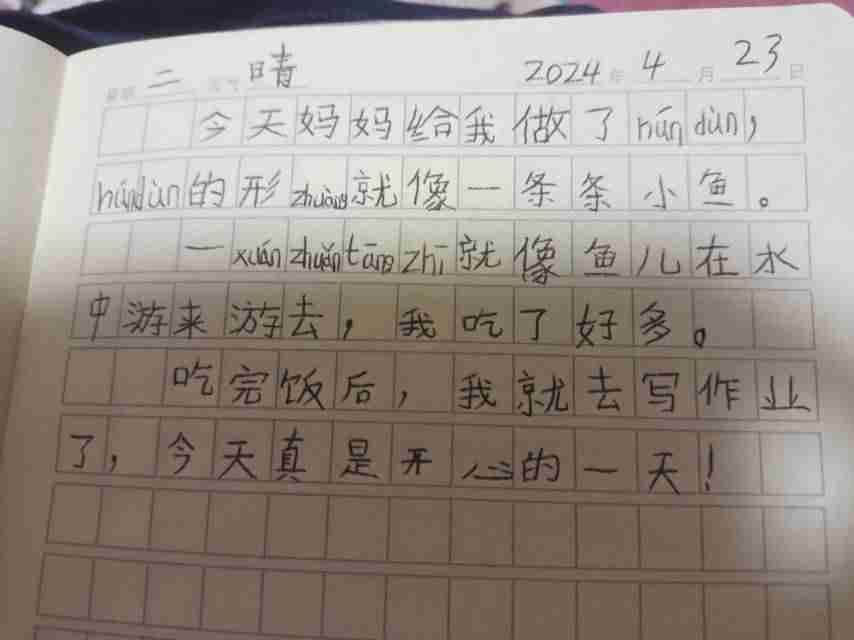 星期 二 天气 晴 2024 年 4 月 23 日
今天妈妈给我做了hún dùn,
húndùn的形zhuàng就像一条条小鱼。
一xuán zhuǎn tāng zhī就像鱼儿在水
中游来游去，我吃了好多。
吃完饭后，我就去写作业
了，今天真是开心的一天！